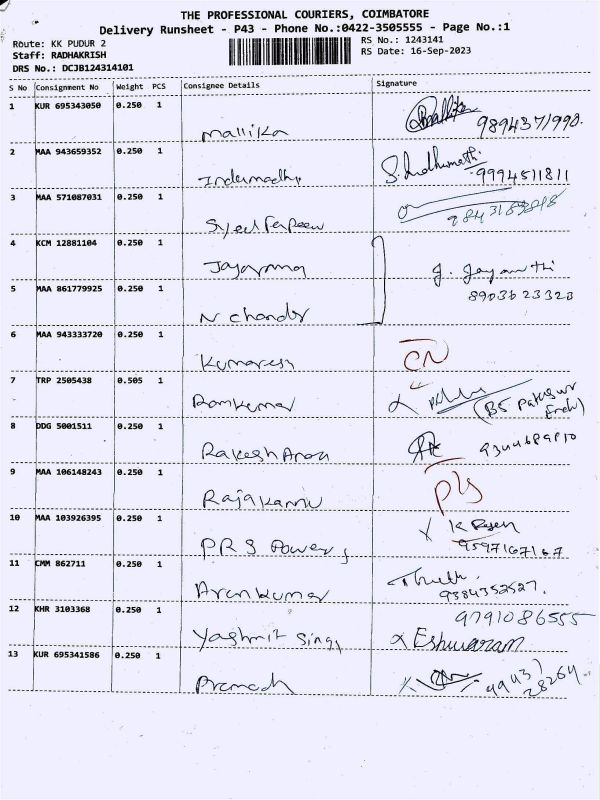 THE PROFESSIONAL COURIERS, COIMBATORE
Delivery Runsheet - P43 - Phone No.:0422-3505555 - Page No.:1
Route: KK PUDUR 2
RS No.: 1243141
Staff: RADHAKRISH
RS Date: 16-Sep-2023
DRS No.: DCJB124314101
S No Consignment No Weight PCS Consignee Details Signature
1 KUR 695343050 0.250 1
Mallika 9894371990.
2 MAA 943659352 0.250 1
Indumadhi 9994511811
3 MAA 571087031 0.250 1
Syed
4 KCM 12881104 0.250 1
J. Jayanthi
5 MAA 861779925 0.250 1
8903623323
N chandr
6 MAA 943333720 0.250 1
Kumaresh CN
7 TRP 2505438 0.505 1
Ramkumar
8 DDG 5001511 0.250 1
Rakesh Arora 9344689810
9 MAA 106148243 0.250 1
Rajakannu
10 MAA 103926395 0.250 1
PRS Powers 9597167167
11 CMM 862711 0.250 1
Arunkumar 9384352527.
12 KHR 3103368 0.250 1
9791086555
Yashmit Singh Eshwaram
13 KUR 695341586 0.250 1
Pramodh